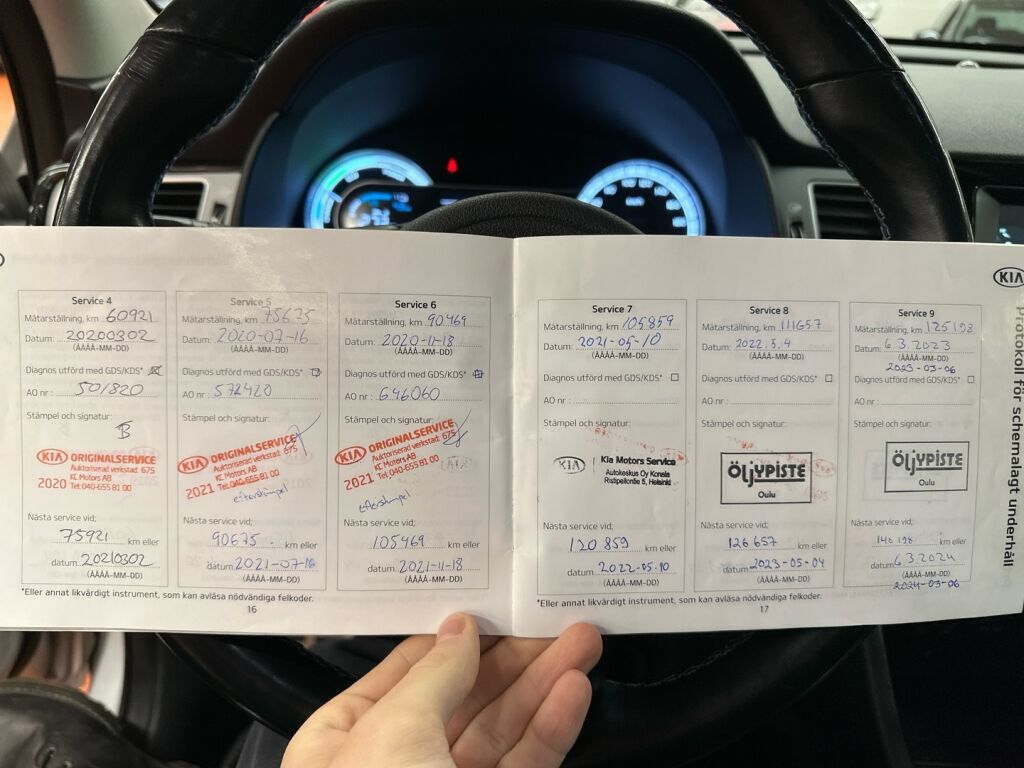 Service 4
Mätarställning, km 60921
Datum: 20200302
(ÅÅÅÅ-MM-DD)
Diagnos utförd med GDS/KDS*
AO nr: 501820
Stämpel och signatur:
B
KIA ORIGINALSERVICE
Auktoriserad verkstad: 675
KC Motors AB
2020 Tel: 040-655 81 00
Nästa service vid;
75921 km eller
datum 20210302
(ÅÅÅÅ-MM-DD)
Service 5
Mätarställning, km 75675
Datum: 2020-07-16
(ÅÅÅÅ-MM-DD)
Diagnos utförd med GDS/KDS*
AO nr: 572420
Stämpel och signatur:
KIA ORIGINALSERVICE
Auktoriserad verkstad: 675
KC Motors AB
2021 Tel: 040-655 81 00
efterstämpel
Nästa service vid;
90675 km eller
datum 2021-07-16
(ÅÅÅÅ-MM-DD)
Service 6
Mätarställning, km 90469
Datum: 2020-11-18
(ÅÅÅÅ-MM-DD)
Diagnos utförd med GDS/KDS*
AO nr: 646060
Stämpel och signatur:
KIA ORIGINALSERVICE
Auktoriserad verkstad: 675
KC Motors AB
2021 Tel: 040-655 81 00
efterstämpel
Nästa service vid;
105469 km eller
datum 2021-11-18
(ÅÅÅÅ-MM-DD)
*Eller annat likvärdigt instrument, som kan avläsa nödvändiga felkoder.
16
KIA
Protokoll för schemalagt underhåll
Service 7
Mätarställning, km 105859
Datum: 2021-05-10
(ÅÅÅÅ-MM-DD)
Diagnos utförd med GDS/KDS*
AO nr :
Stämpel och signatur:
KIA Kia Motors Service
Autokeskus Oy Konala
Ristipellontie 5, Helsinki
Nästa service vid;
120 859 km eller
datum 2022-05-10
(ÅÅÅÅ-MM-DD)
Service 8
Mätarställning, km 111657
Datum: 2022.5.4
(ÅÅÅÅ-MM-DD)
Diagnos utförd med GDS/KDS*
AO nr :
Stämpel och signatur:
ÖLJYPISTE
Oulu
Nästa service vid;
126 657 km eller
datum 2023-05-04
(ÅÅÅÅ-MM-DD)
Service 9
Mätarställning, km 125198
Datum: 6.3.2023
(ÅÅÅÅ-MM-DD)
2023-03-06
Diagnos utförd med GDS/KDS*
AO nr :
Stämpel och signatur:
ÖLJYPISTE
Oulu
Nästa service vid;
140 198 km eller
datum 6.3.2024
(ÅÅÅÅ-MM-DD)
2024-03-06
*Eller annat likvärdigt instrument, som kan avläsa nödvändiga felkoder.
17